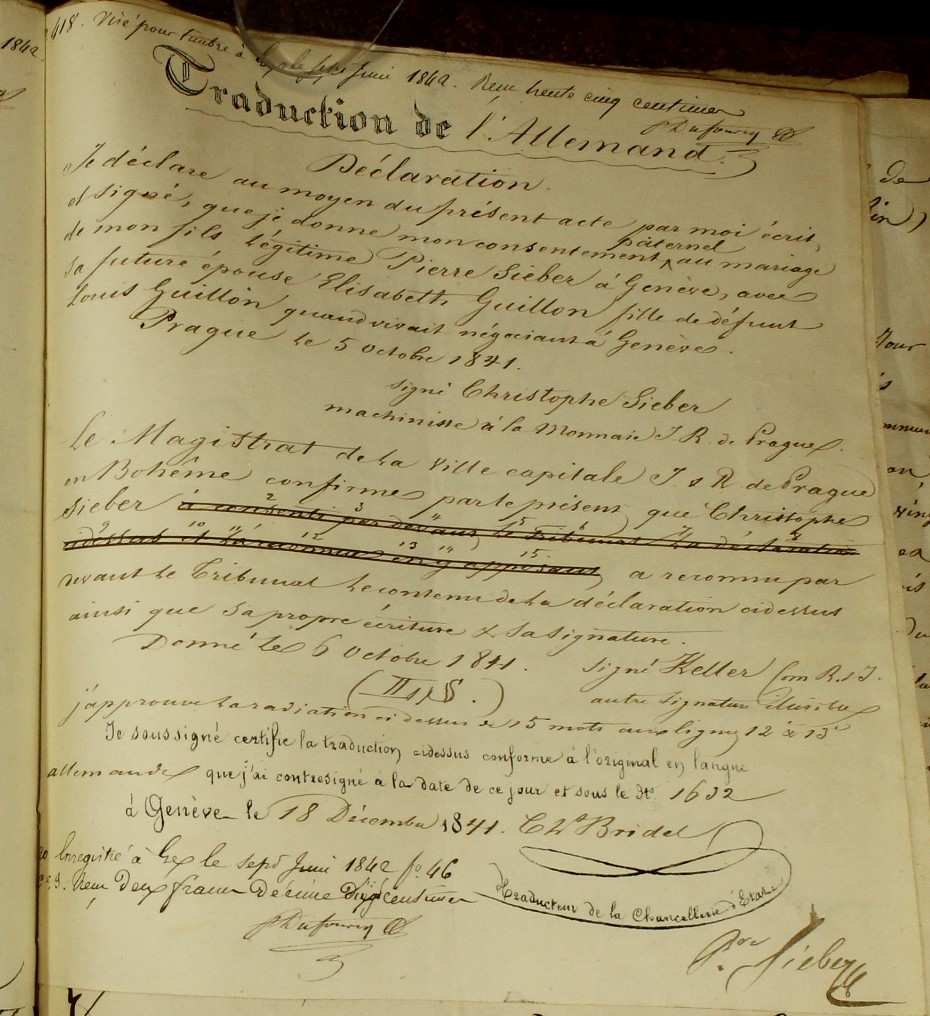 418. Visé pour timbre à Gex le sept Juin 1842. Reçu trente cinq centimes
Dufourcq
Traduction de l'Allemand.
Déclaration.
Je déclare au moyen du présent acte par moi écrit,
et signé, que je donne mon consentement paternel au mariage
de mon fils légitime Pierre Sieber à Genève, avec
sa future épouse Elisabeth Guillon fille de défunt
Louis Guillon quand vivait négociant à Genève.
Prague le 5 octobre 1841.
signé Christophe Sieber
machiniste à la Monnaie I. R. de Prague.
Le Magistrat de la ville capitale I. & R. de Prague
en Bohême confirme par le présent que Christophe
Sieber a consenti par devant le Tribunal la déclaration
cidessus et l'a reconnu en y apposant a reconnu par
devant le Tribunal le contenu de la déclaration cidessus
ainsi que sa propre écriture & sa signature.
Donné le 6 octobre 1841. signé Keller Com R. & I.
autre signature illisible
j'approuve la radiation cidessus de 15 mots aux lignes 12 & 13
Je soussigné certifie la traduction cidessus conforme à l'original en langue
allemande que j'ai contresigné à la date de ce jour et sous le No. 1632
à Genève le 18 Décembre 1841. Ch. Bridel
Traducteur de la Chancellerie d'Etat
Enregistré à Gex le sept Juin 1842 fo. 46
Reçu Deux francs Décime Vingt centimes
Dufourcq
P.re Sieber